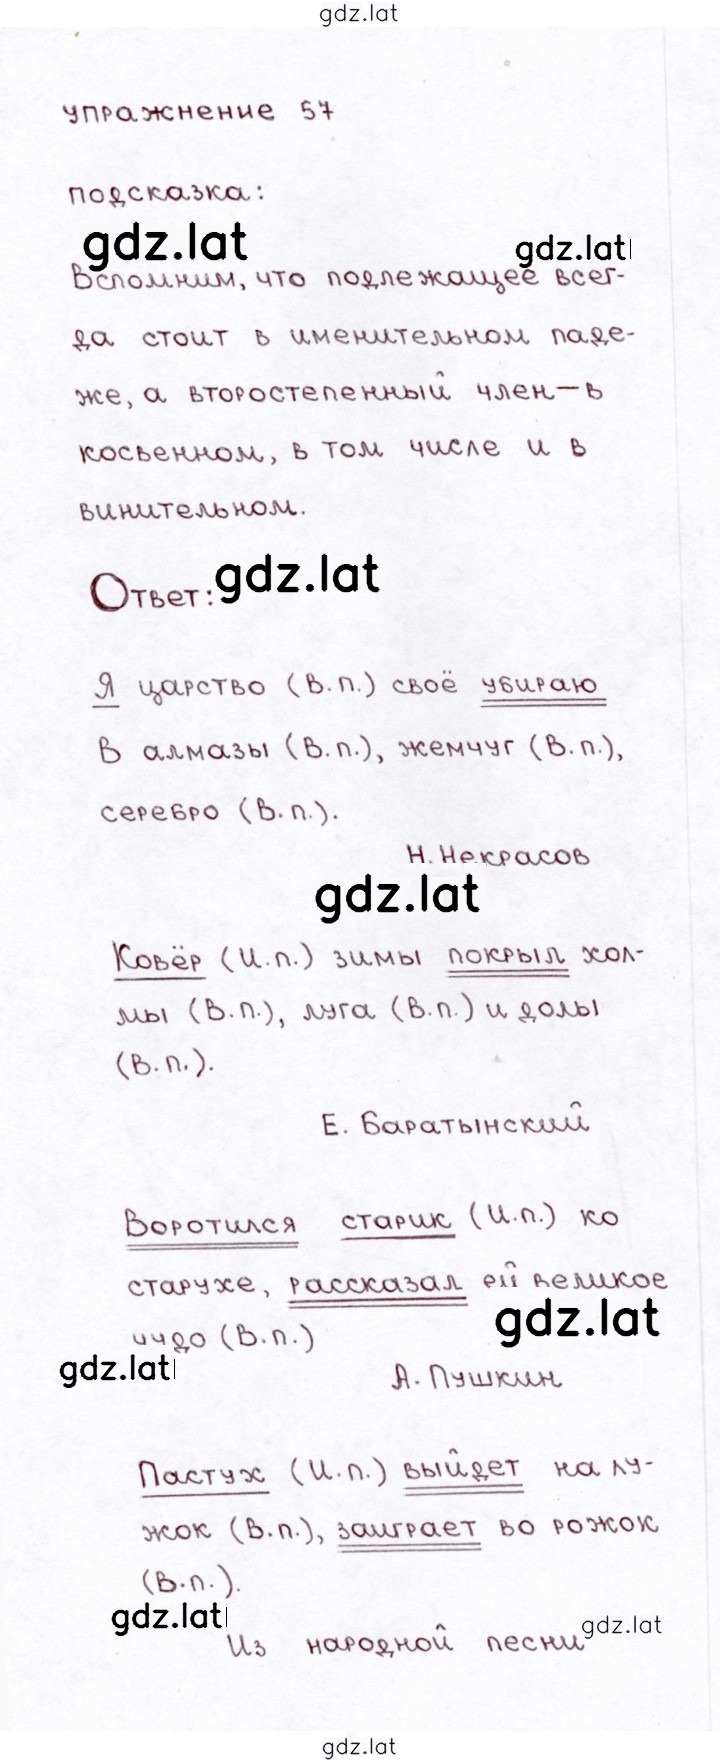 gdz.lat
упражнение 57
подсказка:
gdz.lat gdz.lat
Вспомним, что подлежащее всег-
да стоит в именительном паде-
же, а второстепенный член – в
косвенном, в том числе и в
винительном.
Ответ: gdz.lat
Я царство (В.п.) своё убираю
В алмазы (В.п.), жемчуг (В.п.),
серебро (В.п.).
Н. Некрасов
gdz.lat
Ковёр (И.п.) зимы покрыл хол-
мы (В.п.), луга (В.п.) и долы
(В.п.).
Е. Баратынский
Воротился старик (И.п.) ко
старухе, рассказал ей великое
чудо (В.п.) gdz.lat
gdz.lat
А. Пушкин
Пастух (И.п.) выйдет на лу-
жок (В.п.), заиграет во рожок
(В.п.).
gdz.lat gdz.lat
Из народной песни
gdz.lat